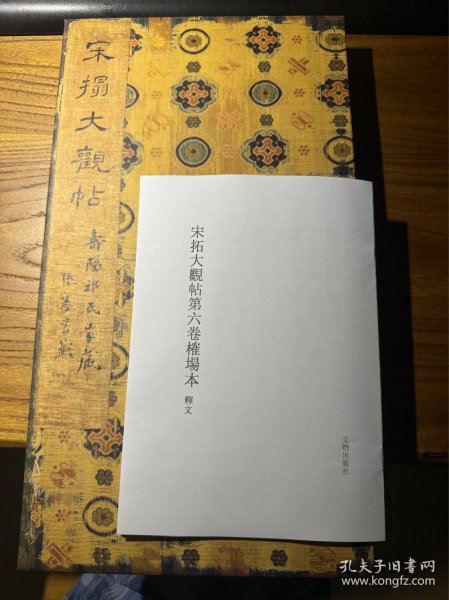 宋搨大觀帖
壽陽祁氏家藏
張
宋拓大觀帖第六卷榷場本
釋文
文物出版社
孔夫子旧书网
www.kongfz.com